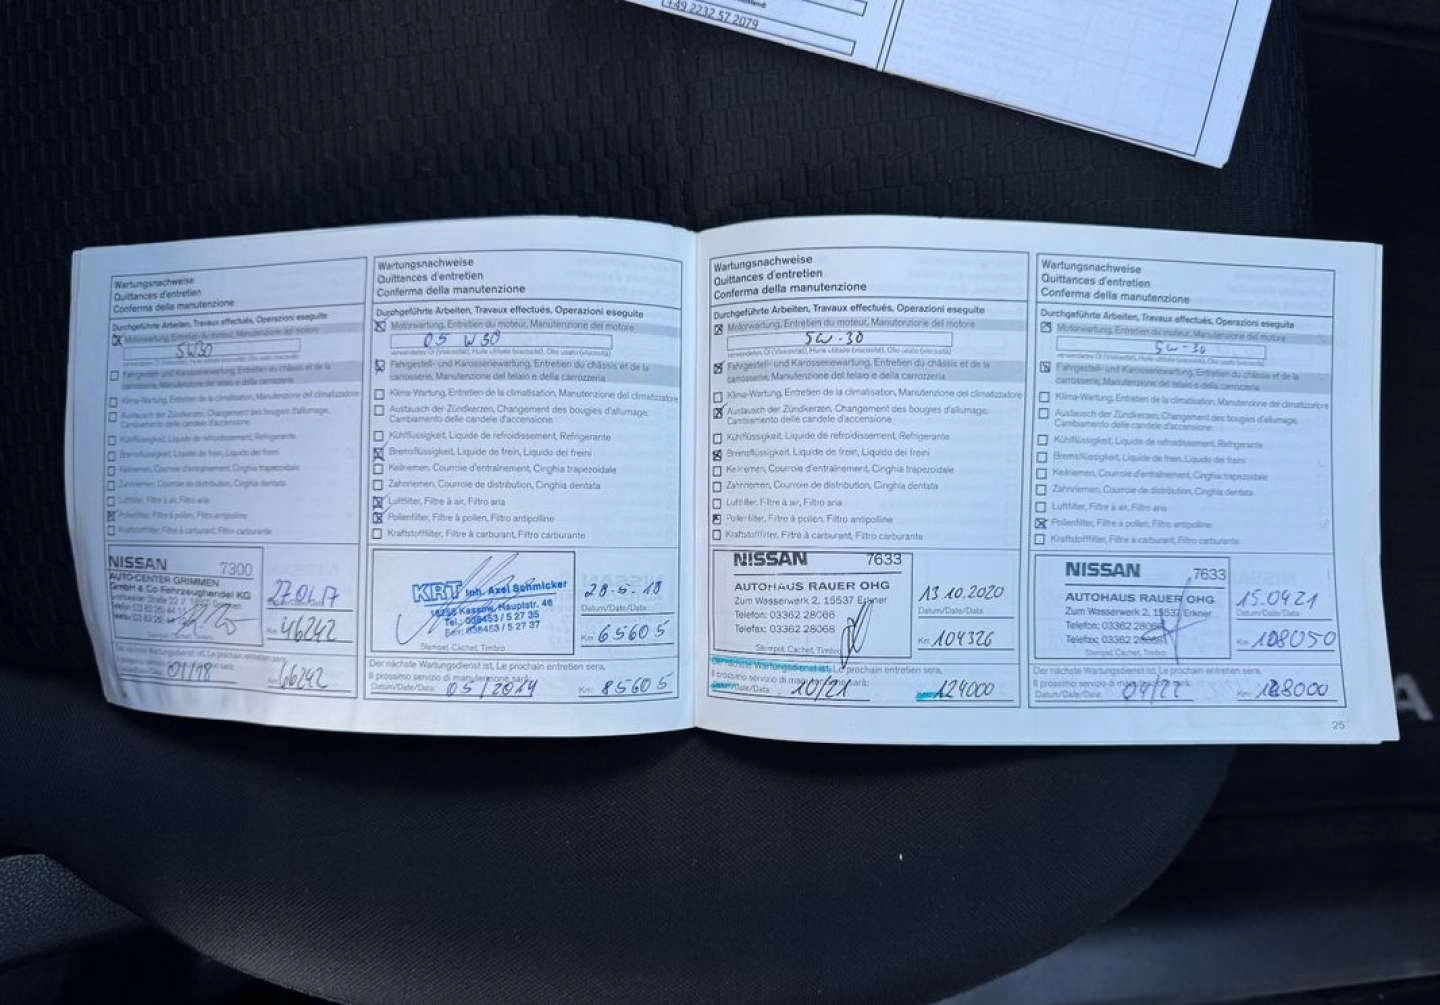 +49 2232 57 2079
Wartungsnachweise
Quittances d'entretien
Conferma della manutenzione
Durchgeführte Arbeiten, Travaux effectués, Operazioni eseguite
Motorwartung, Entretien du moteur, Manutenzione del motore
5W30
Fahrgestell- und Karosseriewartung, Entretien du châssis et de la
carrosserie, Manutenzione del telaio e della carrozzeria
Klima-Wartung, Entretien de la climatisation, Manutenzione del climatizzatore
Austausch der Zündkerzen, Changement des bougies d'allumage,
Cambiamento delle candele d'accensione
Kühlflüssigkeit, Liquide de refroidissement, Refrigerante
Bremsflüssigkeit, Liquide de frein, Liquido dei freini
Keilriemen, Courroie d'entraînement, Cinghia trapezoidale
Zahnriemen, Courroie de distribution, Cinghia dentata
Luftfilter, Filtre à air, Filtro aria
Pollenfilter, Filtre à pollen, Filtro antipolline
Kraftstofffilter, Filtre à carburant, Filtro carburante
NISSAN 7300
AUTO-CENTER GRIMMEN
GmbH & Co Fahrzeughandel KG
27.01.17
Km: 46242
Stempel, Cachet, Timbro
Der nächste Wartungsdienst ist, Le prochain entretien sera,
01/18 66242
Wartungsnachweise
Quittances d'entretien
Conferma della manutenzione
Durchgeführte Arbeiten, Travaux effectués, Operazioni eseguite
Motorwartung, Entretien du moteur, Manutenzione del motore
05 W 30
verwendetes Öl (Viskosität), Huile utilisée (viscosité), Olio usato (viscosità)
Fahrgestell- und Karosseriewartung, Entretien du châssis et de la
carrosserie, Manutenzione del telaio e della carrozzeria
Klima-Wartung, Entretien de la climatisation, Manutenzione del climatizzatore
Austausch der Zündkerzen, Changement des bougies d'allumage,
Cambiamento delle candele d'accensione
Kühlflüssigkeit, Liquide de refroidissement, Refrigerante
Bremsflüssigkeit, Liquide de frein, Liquido dei freini
Keilriemen, Courroie d'entraînement, Cinghia trapezoidale
Zahnriemen, Courroie de distribution, Cinghia dentata
Luftfilter, Filtre à air, Filtro aria
Pollenfilter, Filtre à pollen, Filtro antipolline
Kraftstofffilter, Filtre à carburant, Filtro carburante
KRT Inh. Axel Schmicker
Kassow, Hauptstr. 46
Tel.: 038453 / 5 27 35
Fax: 038453 / 5 27 37
28.5.18
Datum/Date/Data
Km: 65605
Stempel, Cachet, Timbro
Der nächste Wartungsdienst ist, Le prochain entretien sera,
Il prossimo servizio di manutenzione sarà:
Datum/Date/Data: 05/2019 Km: 85605
Wartungsnachweise
Quittances d'entretien
Conferma della manutenzione
Durchgeführte Arbeiten, Travaux effectués, Operazioni eseguite
Motorwartung, Entretien du moteur, Manutenzione del motore
5W-30
verwendetes Öl (Viskosität), Huile utilisée (viscosité), Olio usato (viscosità)
Fahrgestell- und Karosseriewartung, Entretien du châssis et de la
carrosserie, Manutenzione del telaio e della carrozzeria
Klima-Wartung, Entretien de la climatisation, Manutenzione del climatizzatore
Austausch der Zündkerzen, Changement des bougies d'allumage,
Cambiamento delle candele d'accensione
Kühlflüssigkeit, Liquide de refroidissement, Refrigerante
Bremsflüssigkeit, Liquide de frein, Liquido dei freini
Keilriemen, Courroie d'entraînement, Cinghia trapezoidale
Zahnriemen, Courroie de distribution, Cinghia dentata
Luftfilter, Filtre à air, Filtro aria
Pollenfilter, Filtre à pollen, Filtro antipolline
Kraftstofffilter, Filtre à carburant, Filtro carburante
NISSAN 7633
AUTOHAUS RAUER OHG
Zum Wasserwerk 2, 15537 Erkner
Telefon: 03362 28066
Telefax: 03362 28068
13.10.2020
Datum/Date/Data
Km: 104326
Stempel, Cachet, Timbro
Der nächste Wartungsdienst ist, Le prochain entretien sera,
Il prossimo servizio di manutenzione sarà:
Datum/Date/Data: 10/21 124000
Wartungsnachweise
Quittances d'entretien
Conferma della manutenzione
Durchgeführte Arbeiten, Travaux effectués, Operazioni eseguite
Motorwartung, Entretien du moteur, Manutenzione del motore
5W-30
verwendetes Öl (Viskosität), Huile utilisée (viscosité), Olio usato (viscosità)
Fahrgestell- und Karosseriewartung, Entretien du châssis et de la
carrosserie, Manutenzione del telaio e della carrozzeria
Klima-Wartung, Entretien de la climatisation, Manutenzione del climatizzatore
Austausch der Zündkerzen, Changement des bougies d'allumage,
Cambiamento delle candele d'accensione
Kühlflüssigkeit, Liquide de refroidissement, Refrigerante
Bremsflüssigkeit, Liquide de frein, Liquido dei freini
Keilriemen, Courroie d'entraînement, Cinghia trapezoidale
Zahnriemen, Courroie de distribution, Cinghia dentata
Luftfilter, Filtre à air, Filtro aria
Pollenfilter, Filtre à pollen, Filtro antipolline
Kraftstofffilter, Filtre à carburant, Filtro carburante
NISSAN 7633
AUTOHAUS RAUER OHG
Zum Wasserwerk 2, 15537 Erkner
Telefon: 03362 28066
Telefax: 03362 28068
15.04.21
Datum/Date/Data
Km: 108050
Stempel, Cachet, Timbro
Der nächste Wartungsdienst ist, Le prochain entretien sera,
Il prossimo servizio di manutenzione sarà:
Datum/Date/Data: 04/22 Km: 128000
25
A